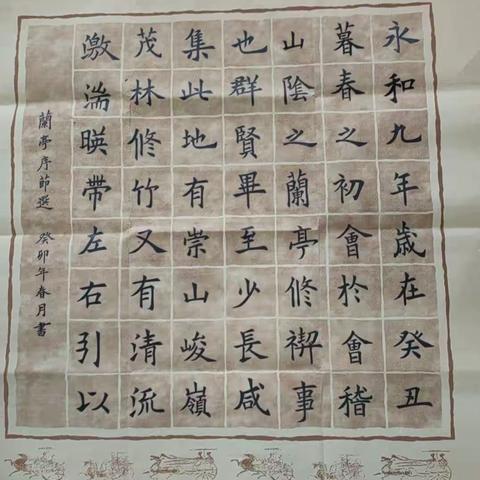 永和九年歲在癸丑
暮春之初會於會稽
山陰之蘭亭修禊事
也群賢畢至少長咸
集此地有崇山峻嶺
茂林修竹又有清流
激湍暎帶左右引以
蘭亭序節選 癸卯年春月書